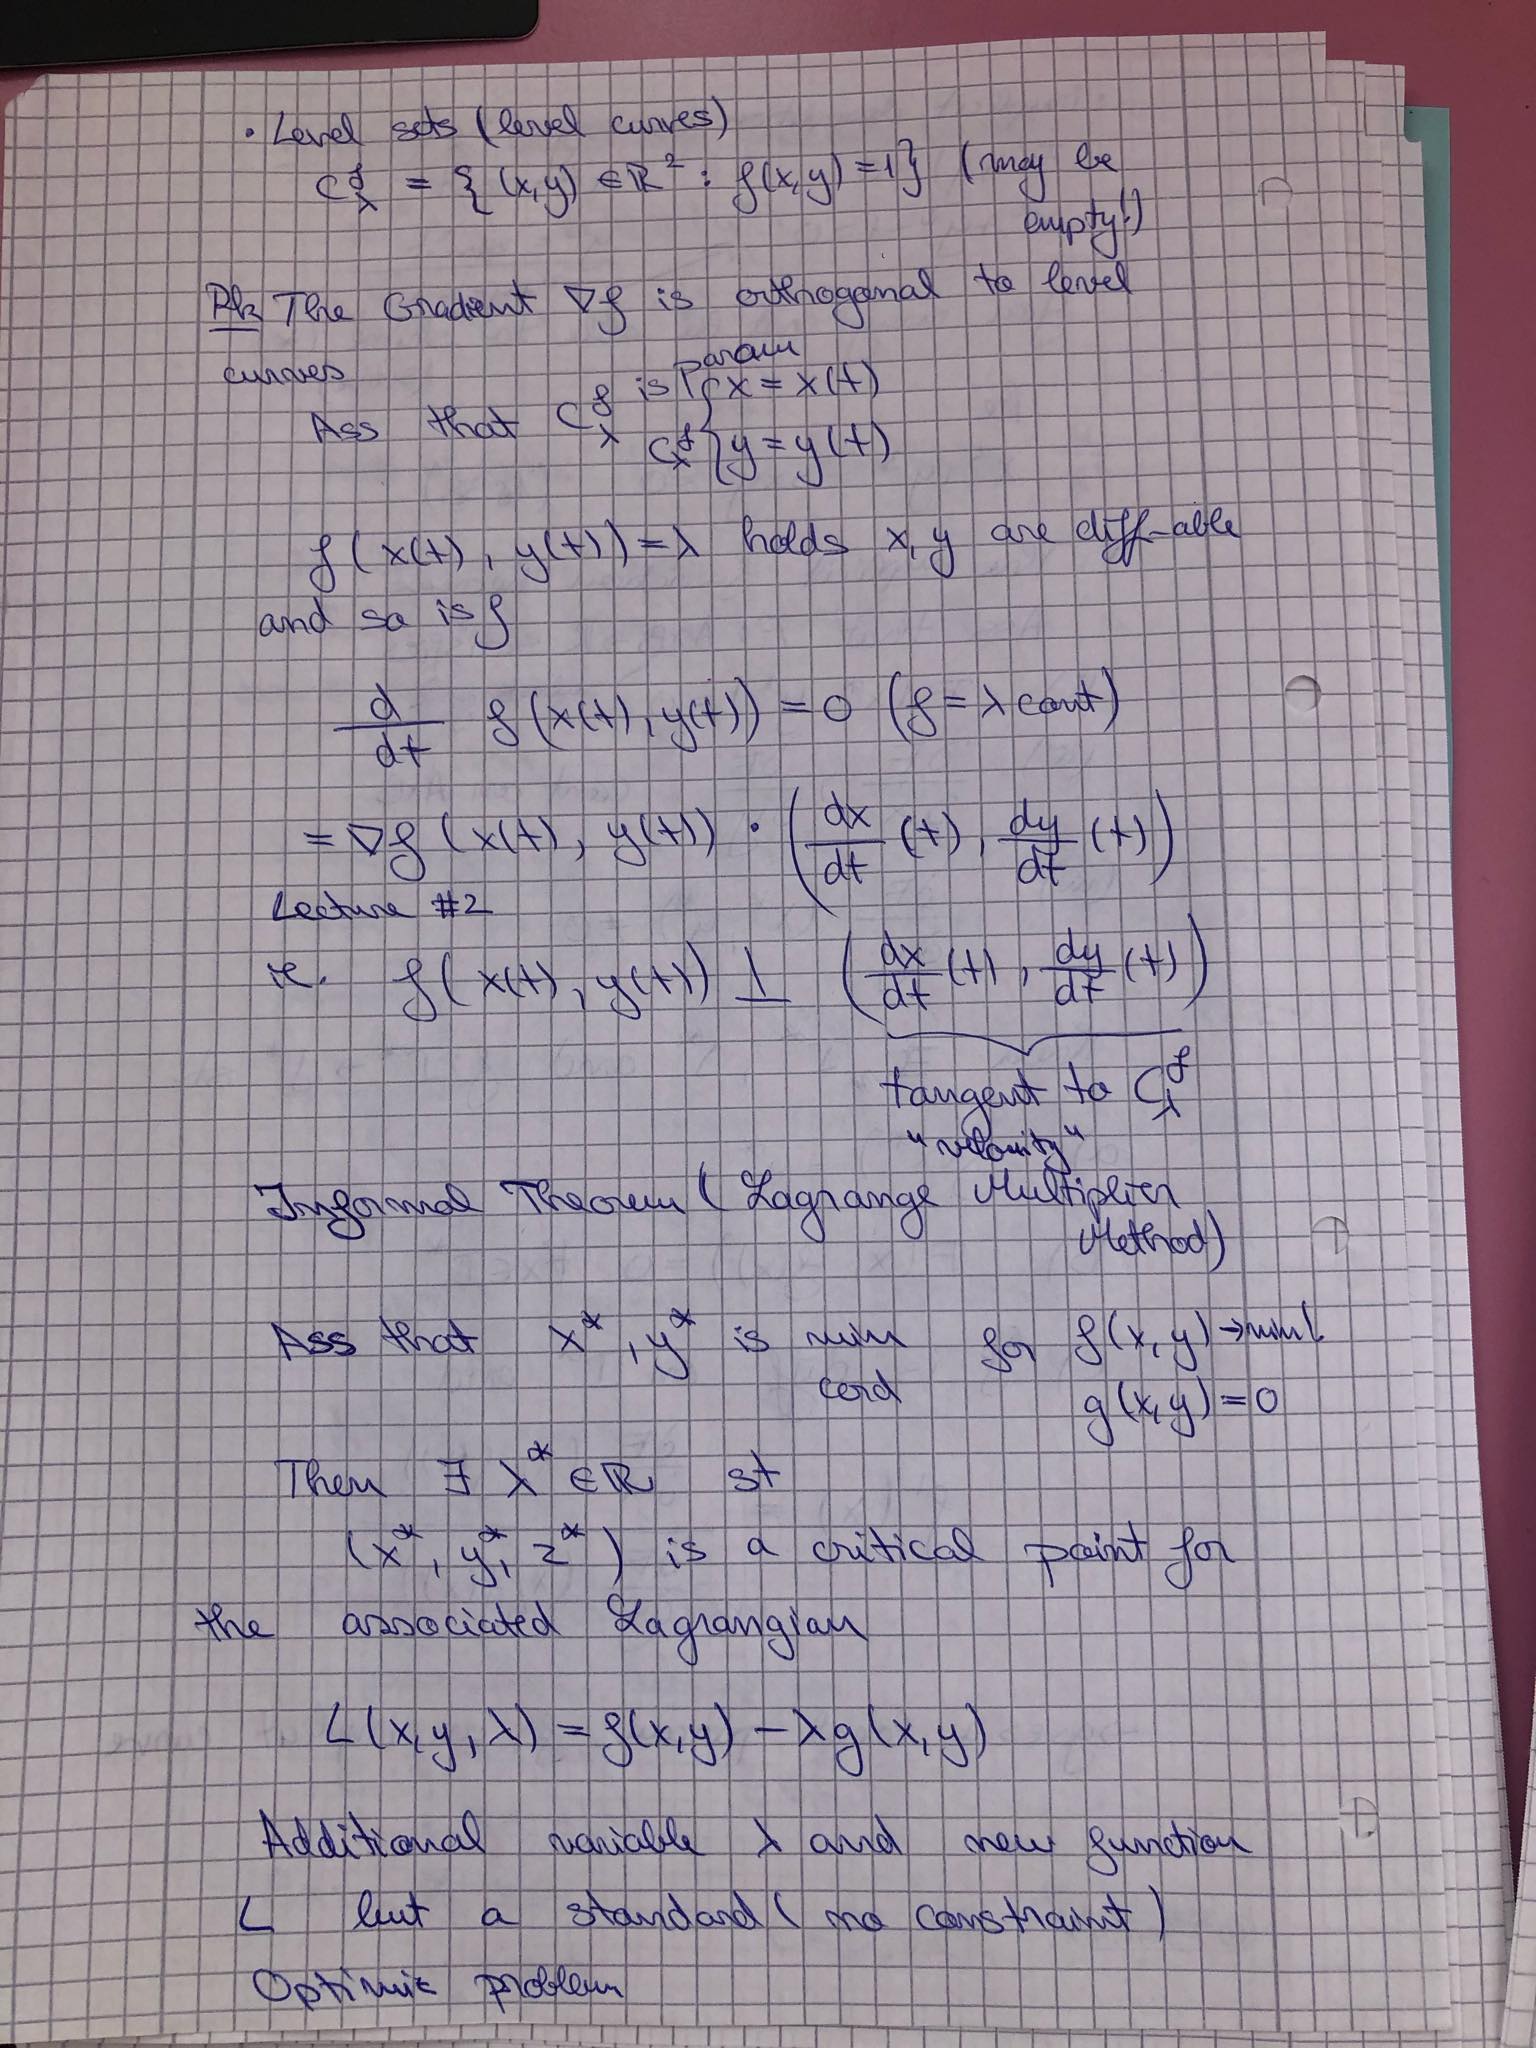 • Level sets (level curves)
C^f_λ = { (x,y) ∈ ℝ² : f(x,y) = 1 } (may be
empty!)
Rk The Gradient ∇f is orthogonal to level
curves
param
Ass that C^f_λ is { x = x(t)
C^f_λ { y = y(t)
f(x(t), y(t)) = λ holds x, y are diff-able
and so is f
d/dt f(x(t), y(t)) = 0 (f = λ cont)
= ∇f(x(t), y(t)) · (dx/dt (t), dy/dt (t))
Lecture #2
ie. f(x(t), y(t)) ⊥ (dx/dt (t), dy/dt (t))
tangent to C^f_λ
"velocity"
Informal Theorem (Lagrange Multiplier
Method)
Ass that x*, y* is min for f(x,y) → min!
cond g(x,y) = 0
Then ∃ λ* ∈ ℝ st
(x*, y*, z*) is a critical point for
the associated Lagrangian
L(x,y,λ) = f(x,y) − λg(x,y)
Additional variable λ and new function
L but a standard (no constraint)
Optimiz problem